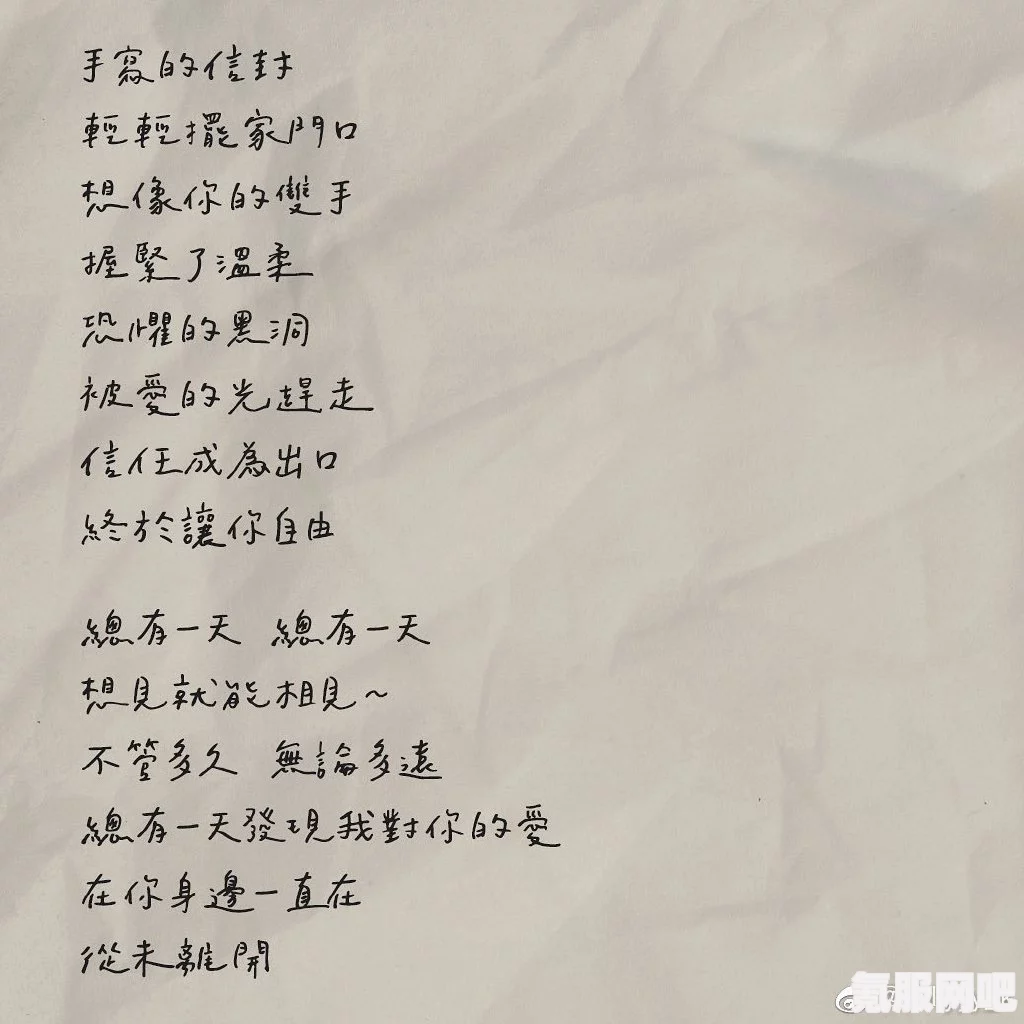 手寫的信封
輕輕擺家門口
想像你的雙手
握緊了溫柔
恐懼的黑洞
被愛的光趕走
信任成為出口
終於讓你自由
總有一天 總有一天
想見就能相見~
不管多久 無論多遠
總有一天發現我對你的愛
在你身邊一直在
從未離開
氪服网吧